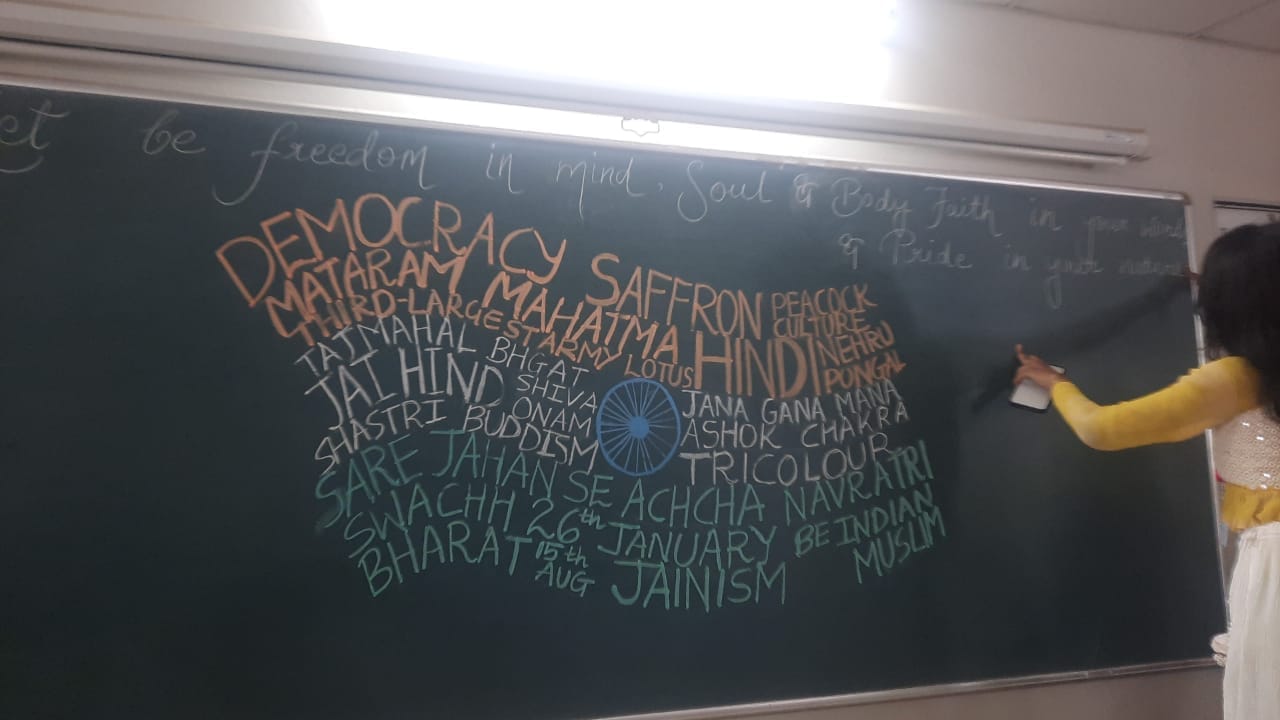 et be freedom in mind, Soul & Body Faith in your words
& Pride in your
DEMOCRACY SAFFRON PEACOCK
MATARAM MAHATMA HINDI CULTURE
THIRD-LARGEST ARMY LOTUS NEHRU
PONGAL
TAJMAHAL BHGAT JANA GANA MANA
JAI HIND SHIVA ASHOK CHAKRA
SHASTRI BUDDISM ONAM TRICOLOUR
SARE JAHAN SE ACHCHA NAVRATRI
SWACHH 26th JANUARY BE INDIAN
BHARAT 15th AUG JAINISM MUSLIM